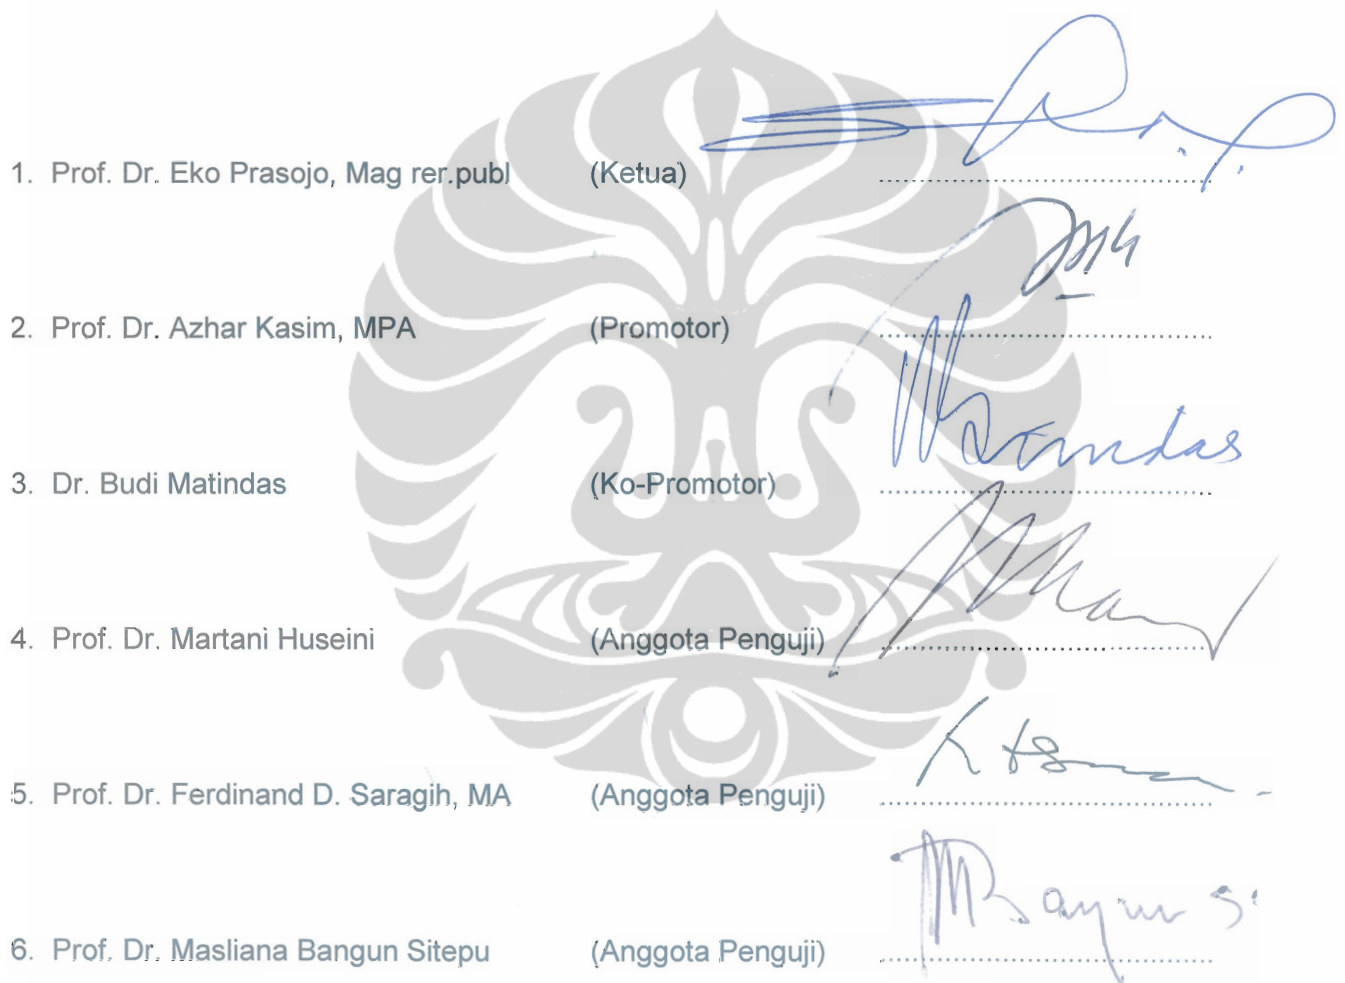 1. Prof. Dr. Eko Prasojo, Mag rer.publ (Ketua) ........................................
2. Prof. Dr. Azhar Kasim, MPA (Promotor) ........................................
3. Dr. Budi Matindas (Ko-Promotor) ........................................
4. Prof. Dr. Martani Huseini (Anggota Penguji) ........................................
5. Prof. Dr. Ferdinand D. Saragih, MA (Anggota Penguji) ........................................
6. Prof. Dr. Masliana Bangun Sitepu (Anggota Penguji) ........................................